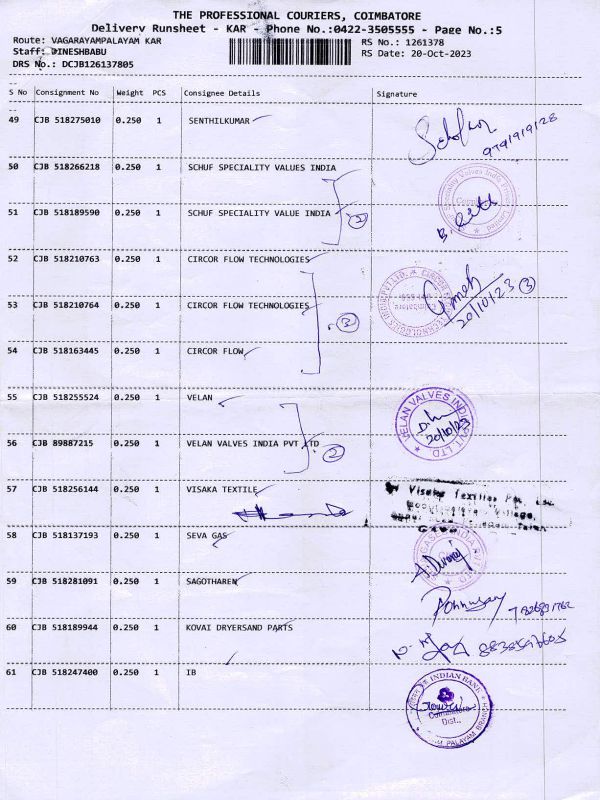 THE PROFESSIONAL COURIERS, COIMBATORE
Delivery Runsheet - KAR - Phone No.:0422-3505555 - Page No.:5
Route: VAGARAYAMPALAYAM KAR
RS No.: 1261378
Staff: DINESHBABU
RS Date: 20-Oct-2023
DRS No.: DCJB126137805
S No Consignment No Weight PCS Consignee Details Signature
49 CJB 518275010 0.250 1 SENTHILKUMAR
9791919128
50 CJB 518266218 0.250 1 SCHUF SPECIALITY VALUES INDIA
51 CJB 518189590 0.250 1 SCHUF SPECIALITY VALUE INDIA 2
52 CJB 518210763 0.250 1 CIRCOR FLOW TECHNOLOGIES
20/10/23 3
53 CJB 518210764 0.250 1 CIRCOR FLOW TECHNOLOGIES
3
54 CJB 518163445 0.250 1 CIRCOR FLOW
55 CJB 518255524 0.250 1 VELAN
VELAN VALVES INDIA PVT LTD.
20/10/23
56 CJB 89887215 0.250 1 VELAN VALVES INDIA PVT LTD 2
57 CJB 518256144 0.250 1 VISAKA TEXTILE
Visaka Textiles
58 CJB 518137193 0.250 1 SEVA GAS
59 CJB 518281091 0.250 1 SAGOTHAREN
60 CJB 518189944 0.250 1 KOVAI DRYERSAND PARTS
61 CJB 518247400 0.250 1 IB
INDIAN BANK
Coimbatore
Dist.,
PALAYAM BRANCH